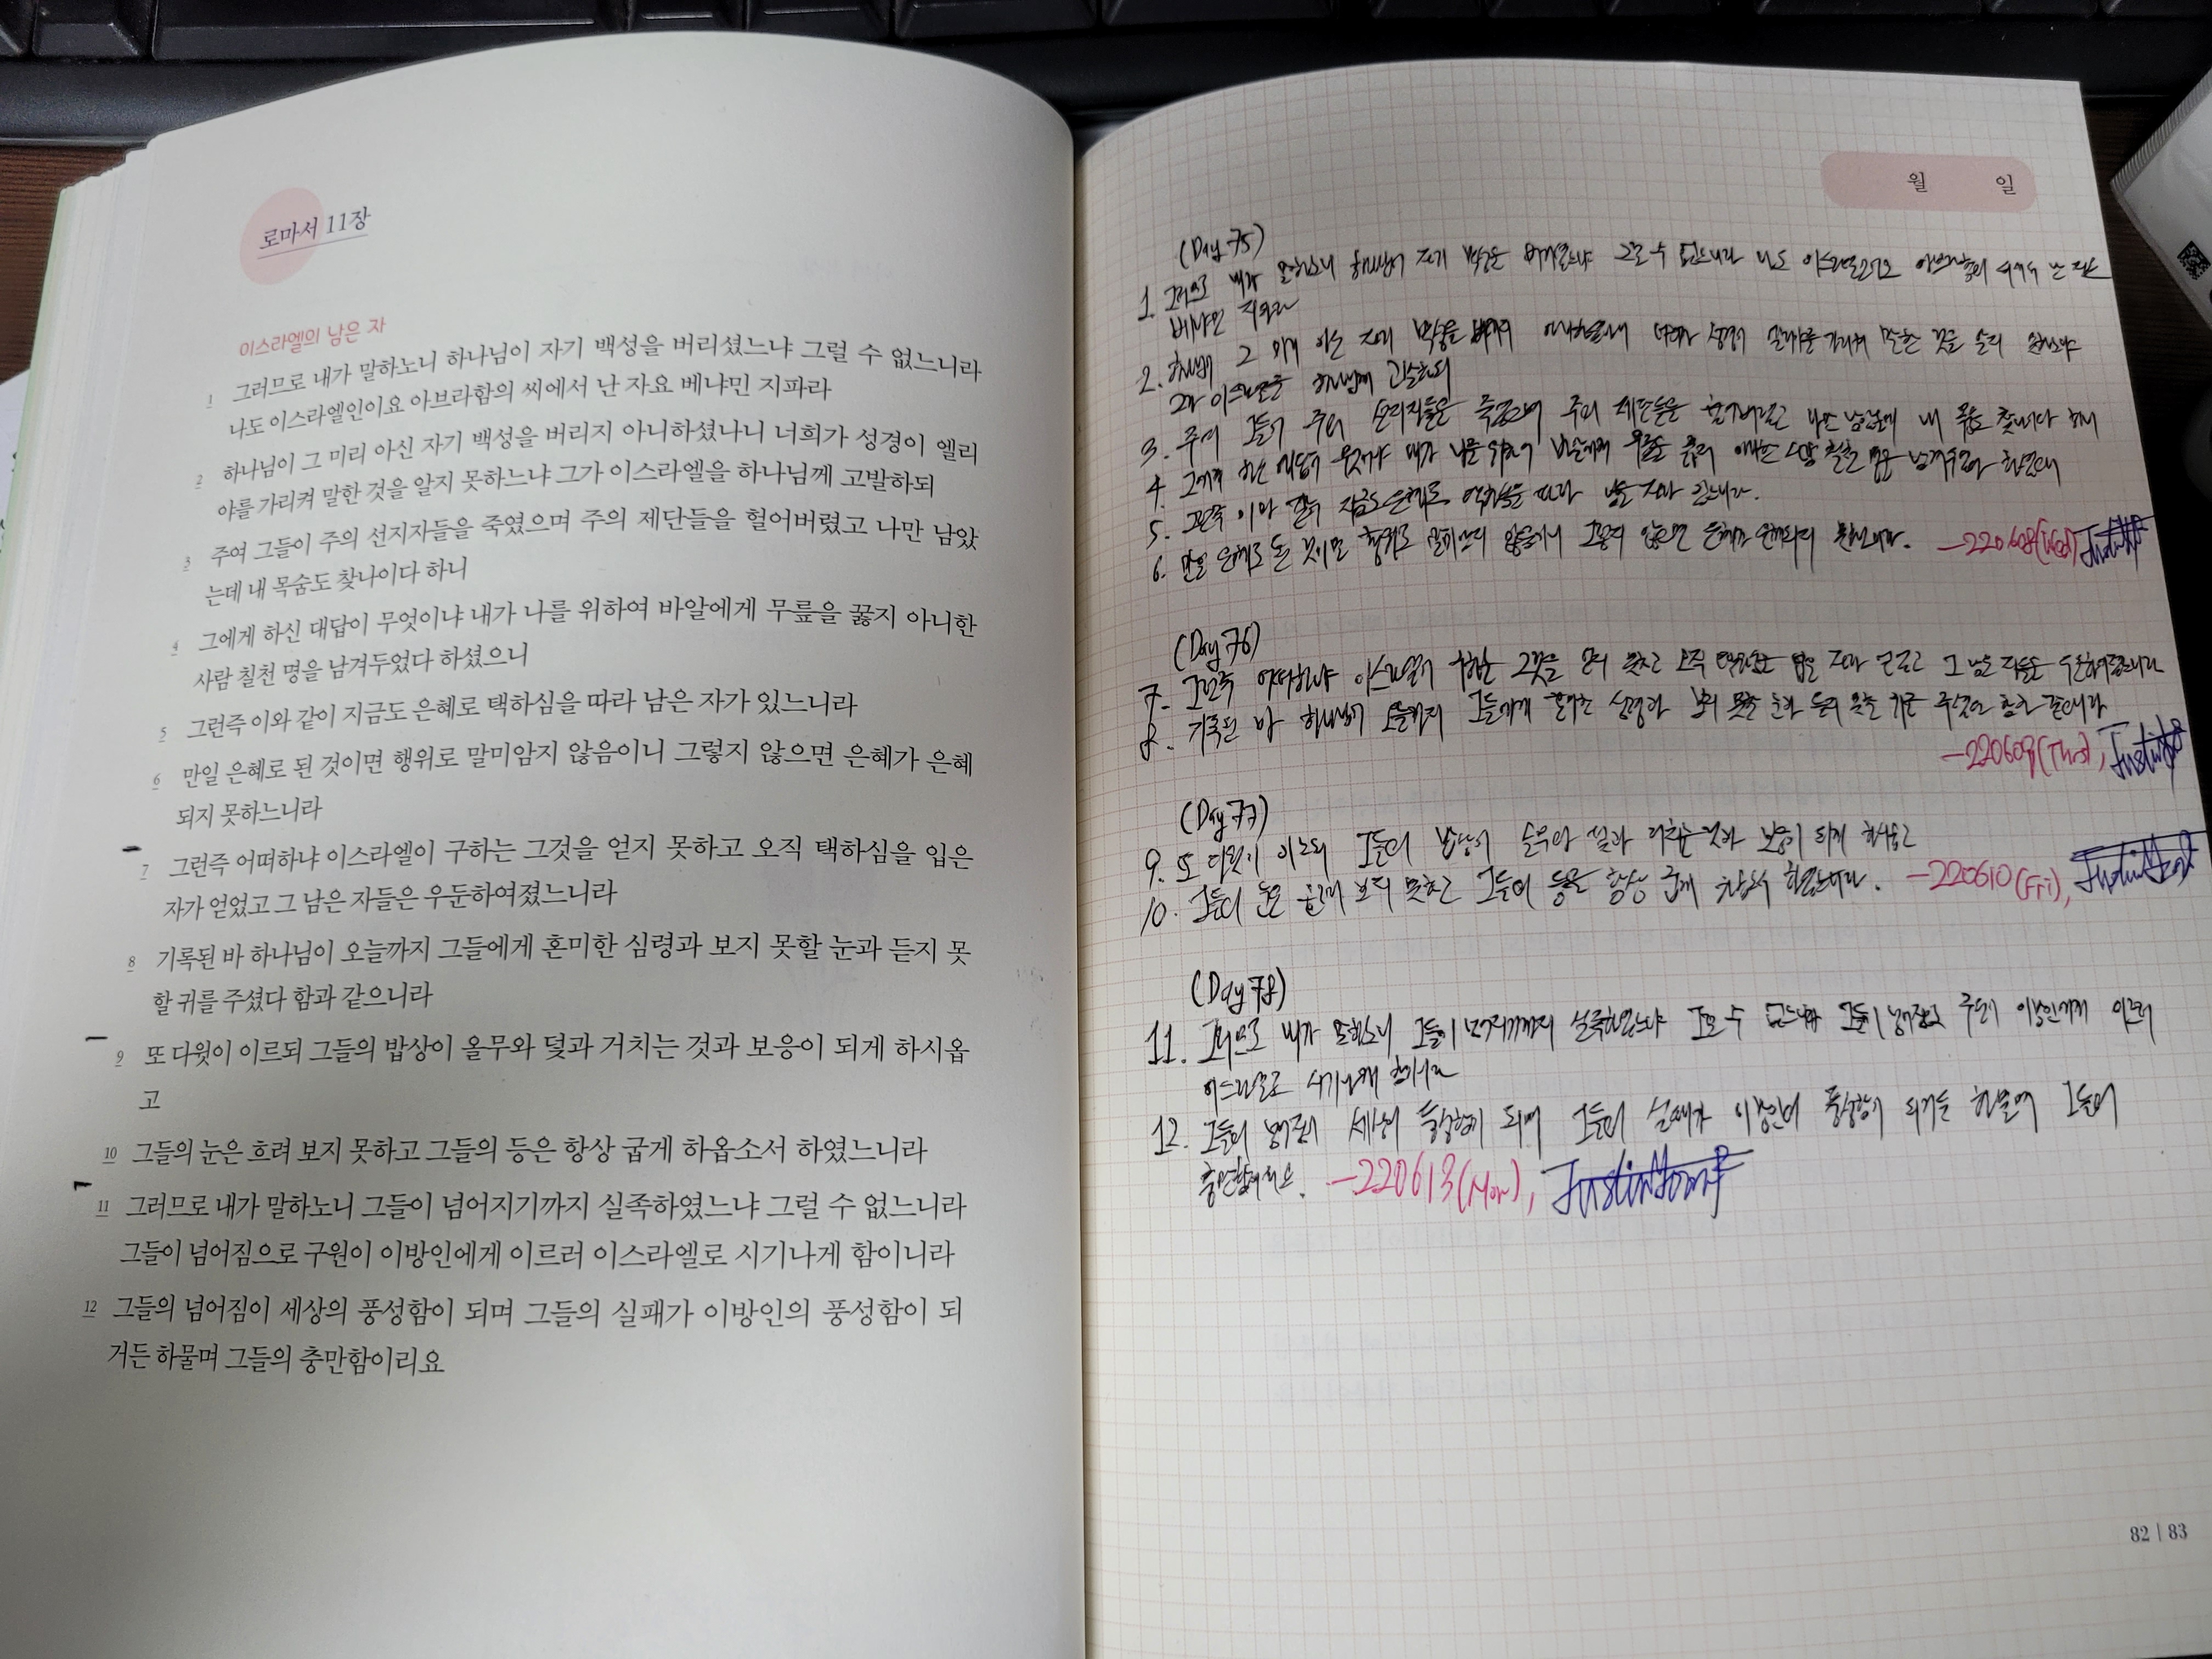 로마서 11장
이스라엘의 남은 자
1 그러므로 내가 말하노니 하나님이 자기 백성을 버리셨느냐 그럴 수 없느니라
나도 이스라엘인이요 아브라함의 씨에서 난 자요 베냐민 지파라
2 하나님이 그 미리 아신 자기 백성을 버리지 아니하셨나니 너희가 성경이 엘리
야를 가리켜 말한 것을 알지 못하느냐 그가 이스라엘을 하나님께 고발하되
3 주여 그들이 주의 선지자들을 죽였으며 주의 제단들을 헐어버렸고 나만 남았
는데 내 목숨도 찾나이다 하니
4 그에게 하신 대답이 무엇이냐 내가 나를 위하여 바알에게 무릎을 꿇지 아니한
사람 칠천 명을 남겨두었다 하셨으니
5 그런즉 이와 같이 지금도 은혜로 택하심을 따라 남은 자가 있느니라
6 만일 은혜로 된 것이면 행위로 말미암지 않음이니 그렇지 않으면 은혜가 은혜
되지 못하느니라
7 그런즉 어떠하냐 이스라엘이 구하는 그것을 얻지 못하고 오직 택하심을 입은
자가 얻었고 그 남은 자들은 우둔하여졌느니라
8 기록된 바 하나님이 오늘까지 그들에게 혼미한 심령과 보지 못할 눈과 듣지 못
할 귀를 주셨다 함과 같으니라
9 또 다윗이 이르되 그들의 밥상이 올무와 덫과 거치는 것과 보응이 되게 하시옵
고
10 그들의 눈은 흐려 보지 못하고 그들의 등은 항상 굽게 하옵소서 하였느니라
11 그러므로 내가 말하노니 그들이 넘어지기까지 실족하였느냐 그럴 수 없느니라
그들이 넘어짐으로 구원이 이방인에게 이르러 이스라엘로 시기나게 함이니라
12 그들의 넘어짐이 세상의 풍성함이 되며 그들의 실패가 이방인의 풍성함이 되
거든 하물며 그들의 충만함이리요
월 일
(Day 75)
1. 그러므로 내가 말하노니 하나님이 자기 백성을 버리셨느냐 그럴 수 없느니라 나도 이스라엘인이요 아브라함의 씨에서 난 자요
베냐민 지파라
2. 하나님이 그 미리 아신 자기 백성을 버리지 아니하셨나니 너희가 성경이 엘리야를 가리켜 말한 것을 알지 못하느냐
그가 이스라엘을 하나님께 고발하되
3. 주여 그들이 주의 선지자들을 죽였으며 주의 제단들을 헐어버렸고 나만 남았는데 내 목숨도 찾나이다 하니
4. 그에게 하신 대답이 무엇이냐 내가 나를 위하여 바알에게 무릎을 꿇지 아니한 사람 칠천 명을 남겨두었다 하셨으니
5. 그런즉 이와 같이 지금도 은혜로 택하심을 따라 남은 자가 있느니라.
6. 만일 은혜로 된 것이면 행위로 말미암지 않음이니 그렇지 않으면 은혜가 은혜되지 못하느니라. -220608(Wed)
(Day 76)
7. 그런즉 어떠하냐 이스라엘이 구하는 그것을 얻지 못하고 오직 택하심을 입은 자가 얻었고 그 남은 자들은 우둔하여졌느니라
8. 기록된 바 하나님이 오늘까지 그들에게 혼미한 심령과 보지 못할 눈과 듣지 못할 귀를 주셨다 함과 같으니라
-220609(Thu),
(Day 77)
9. 또 다윗이 이르되 그들의 밥상이 올무와 덫과 거치는 것과 보응이 되게 하시옵고
10. 그들의 눈은 흐려 보지 못하고 그들의 등은 항상 굽게 하옵소서 하였느니라. -220610(Fri),
(Day 78)
11. 그러므로 내가 말하노니 그들이 넘어지기까지 실족하였느냐 그럴 수 없느니라 그들이 넘어짐으로 구원이 이방인에게 이르러
이스라엘로 시기나게 함이니라
12. 그들의 넘어짐이 세상의 풍성함이 되며 그들의 실패가 이방인의 풍성함이 되거든 하물며 그들의
충만함이리요. -220613(Mon),
82 | 83